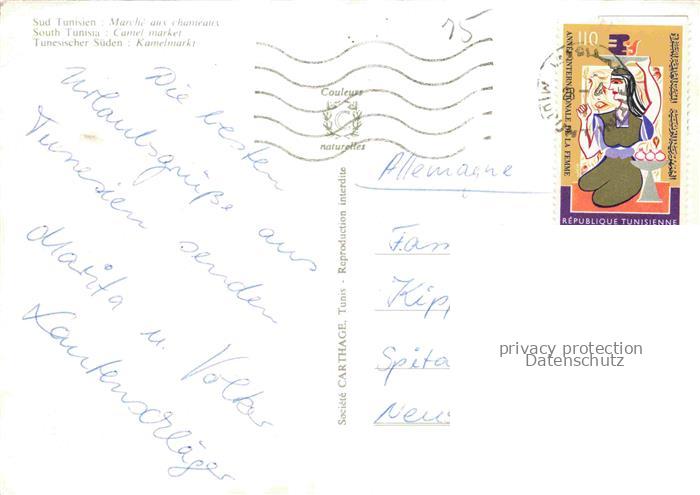 Sud Tunisien : Marché aux chameaux
South Tunisia : Camel market
Tunesischer Süden : Kamelmarkt
15
Die besten
Urlaubsgrüße aus
Tunesien senden
Marita u. Volker
Lautenschläger
Couleurs
naturelles
Société CARTHAGE, Tunis - Reproduction interdite
110
ANNÉE INTERNATIONALE DE LA FEMME
RÉPUBLIQUE TUNISIENNE
Allemagne
Fam
Kipp
Spita
Neu
privacy protection
Datenschutz